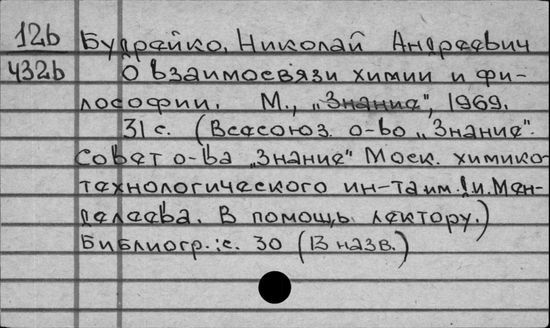 12b Будрейко, Николай Андреевич
Ч32b О взаимосвязи химии и фи-
лософии. М., „Знание", 1969.
31 с. (Всесоюз. о-во „Знание".
Совет о-ва „Знание" Моск. химико-
технологического ин-та им. Мен-
делеева. В помощь лектору.)
Библиогр.: с. 30 (13 назв.)